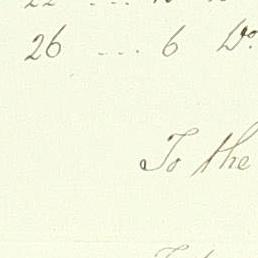 26 .... 6 Do
To the